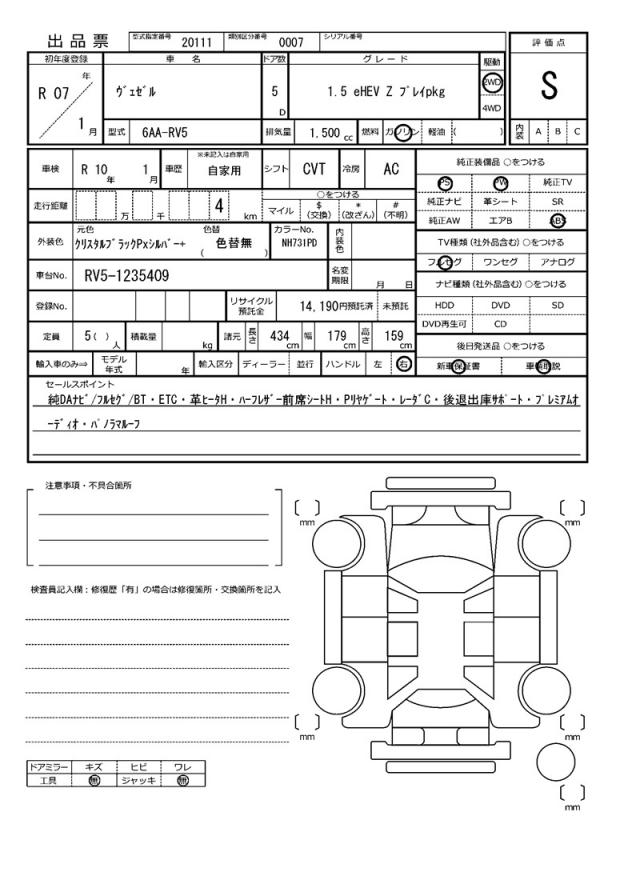 出品票 型式指定番号 20111 類別区分番号 0007 シリアル番号
評価点
S
内装 A B C
初年度登録 車名 ドア数 グレード 駆動
R 07 年 1 月 ｳﾞｪｾﾞﾙ 5 D 1.5 eHEV Z ﾌﾟﾚｲpkg 2WD 4WD
型式 6AA-RV5 排気量 1.500 cc 燃料 ガソリン 軽油 ( )
車検 R 10 年 1 月 車歴 ※未記入は自家用 自家用 シフト CVT 冷房 AC
走行距離 万 千 4 km ○をつける
マイル $ (交換) * (改ざん) # (不明)
外装色 元色 ｸﾘｽﾀﾙﾌﾞﾗｯｸPxｼﾙﾊﾞｰ+ 色替 ( 色替無 ) カラーNo. NH731PD 内装色
車台No. RV5-1235409 名変期限 月 日
登録No. リサイクル預託金 14,190円預託済 未預託
定員 5 ( ) 人 積載量 kg 諸元 長さ 434 cm 幅 179 cm 高さ 159 cm
輸入車のみ⇒ モデル年式 年 輸入区分 ディーラー 並行 ハンドル 左 右
純正装備品 ○をつける
PS PW 純正TV
純正ナビ 革シート SR
純正AW エアB ABS
TV種類 (社外品含む) ○をつける
フルセグ ワンセグ アナログ
ナビ種類 (社外品含む) ○をつける
HDD DVD SD
DVD再生可 CD
後日発送品 ○をつける
新車保証書 車輌取説
セールスポイント
純DAﾅﾋﾞ/ﾌﾙｾｸﾞ/BT・ETC・革ﾋｰﾀH・ﾊｰﾌﾚｻﾞｰ前席ｼｰﾄH・Pﾘﾔｹﾞｰﾄ・ﾚｰﾀﾞC・後退出庫ｻﾎﾟｰﾄ・ﾌﾟﾚﾐｱﾑｵ
ｰﾃﾞｨｵ・ﾊﾟﾉﾗﾏﾙｰﾌ
注意事項・不具合箇所
検査員記入欄：修復歴「有」の場合は修復箇所・交換箇所を記入
ドアミラー キズ ヒビ ワレ
工具 無 ジャッキ 無
mm
mm
mm
mm
mm